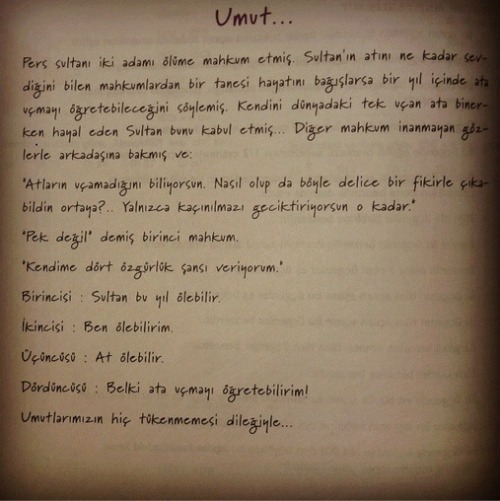 Umut...
Pers sultanı iki adamı ölüme mahkum etmiş. Sultan'ın atını ne kadar sev-
diğini bilen mahkumlardan bir tanesi hayatını bağışlarsa bir yıl içinde ata
uçmayı öğretebileceğini söylemiş. Kendini dünyadaki tek uçan ata biner-
ken hayal eden Sultan bunu kabul etmiş... Diğer mahkum inanmayan göz-
lerle arkadaşına bakmış ve:
"Atların uçamadığını biliyorsun. Nasıl olup da böyle delice bir fikirle çıka-
bildin ortaya?.. Yalnızca kaçınılmazı geciktiriyorsun o kadar."
"Pek değil" demiş birinci mahkum.
"Kendime dört özgürlük şansı veriyorum."
Birincisi : Sultan bu yıl ölebilir.
İkincisi : Ben ölebilirim.
Üçüncüsü : At ölebilir.
Dördüncüsü : Belki ata uçmayı öğretebilirim!
Umutlarımızın hiç tükenmemesi dileğiyle...